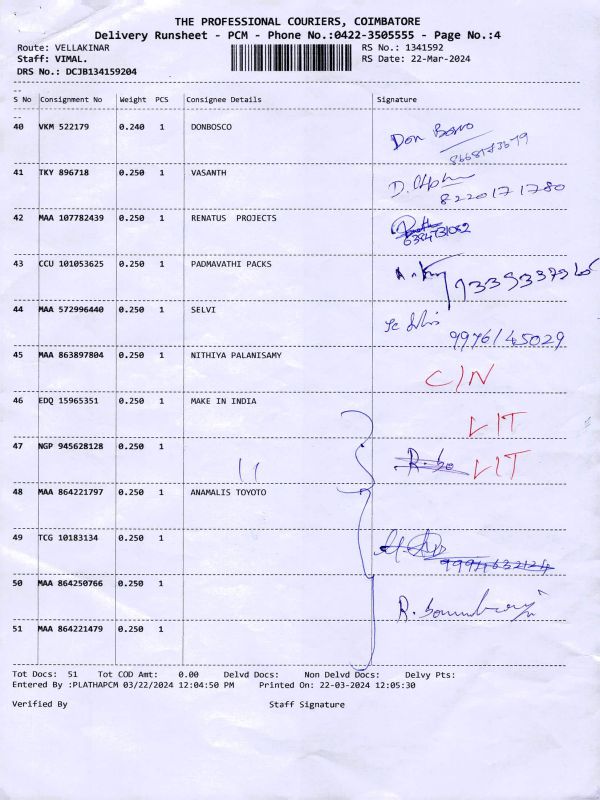 THE PROFESSIONAL COURIERS, COIMBATORE
Delivery Runsheet - PCM - Phone No.:0422-3505555 - Page No.:4
Route: VELLAKINAR RS No.: 1341592
Staff: VIMAL. RS Date: 22-Mar-2024
DRS No.: DCJB134159204
S No Consignment No Weight PCS Consignee Details Signature
40 VKM 522179 0.240 1 DONBOSCO Don Bosco
8668173679
41 TKY 896718 0.250 1 VASANTH
8220171780
42 MAA 107782439 0.250 1 RENATUS PROJECTS
43 CCU 101053625 0.250 1 PADMAVATHI PACKS
44 MAA 572996440 0.250 1 SELVI
9976145029
45 MAA 863897804 0.250 1 NITHIYA PALANISAMY C/N
46 EDQ 15965351 0.250 1 MAKE IN INDIA LIT
47 NGP 945628128 0.250 1 " LIT
48 MAA 864221797 0.250 1 ANAMALIS TOYOTO
49 TCG 10183134 0.250 1
9994632124
50 MAA 864250766 0.250 1
51 MAA 864221479 0.250 1
Tot Docs: 51 Tot COD Amt: 0.00 Delvd Docs: Non Delvd Docs: Delvy Pts:
Entered By :PLATHAPCM 03/22/2024 12:04:50 PM Printed On: 22-03-2024 12:05:30
Verified By Staff Signature